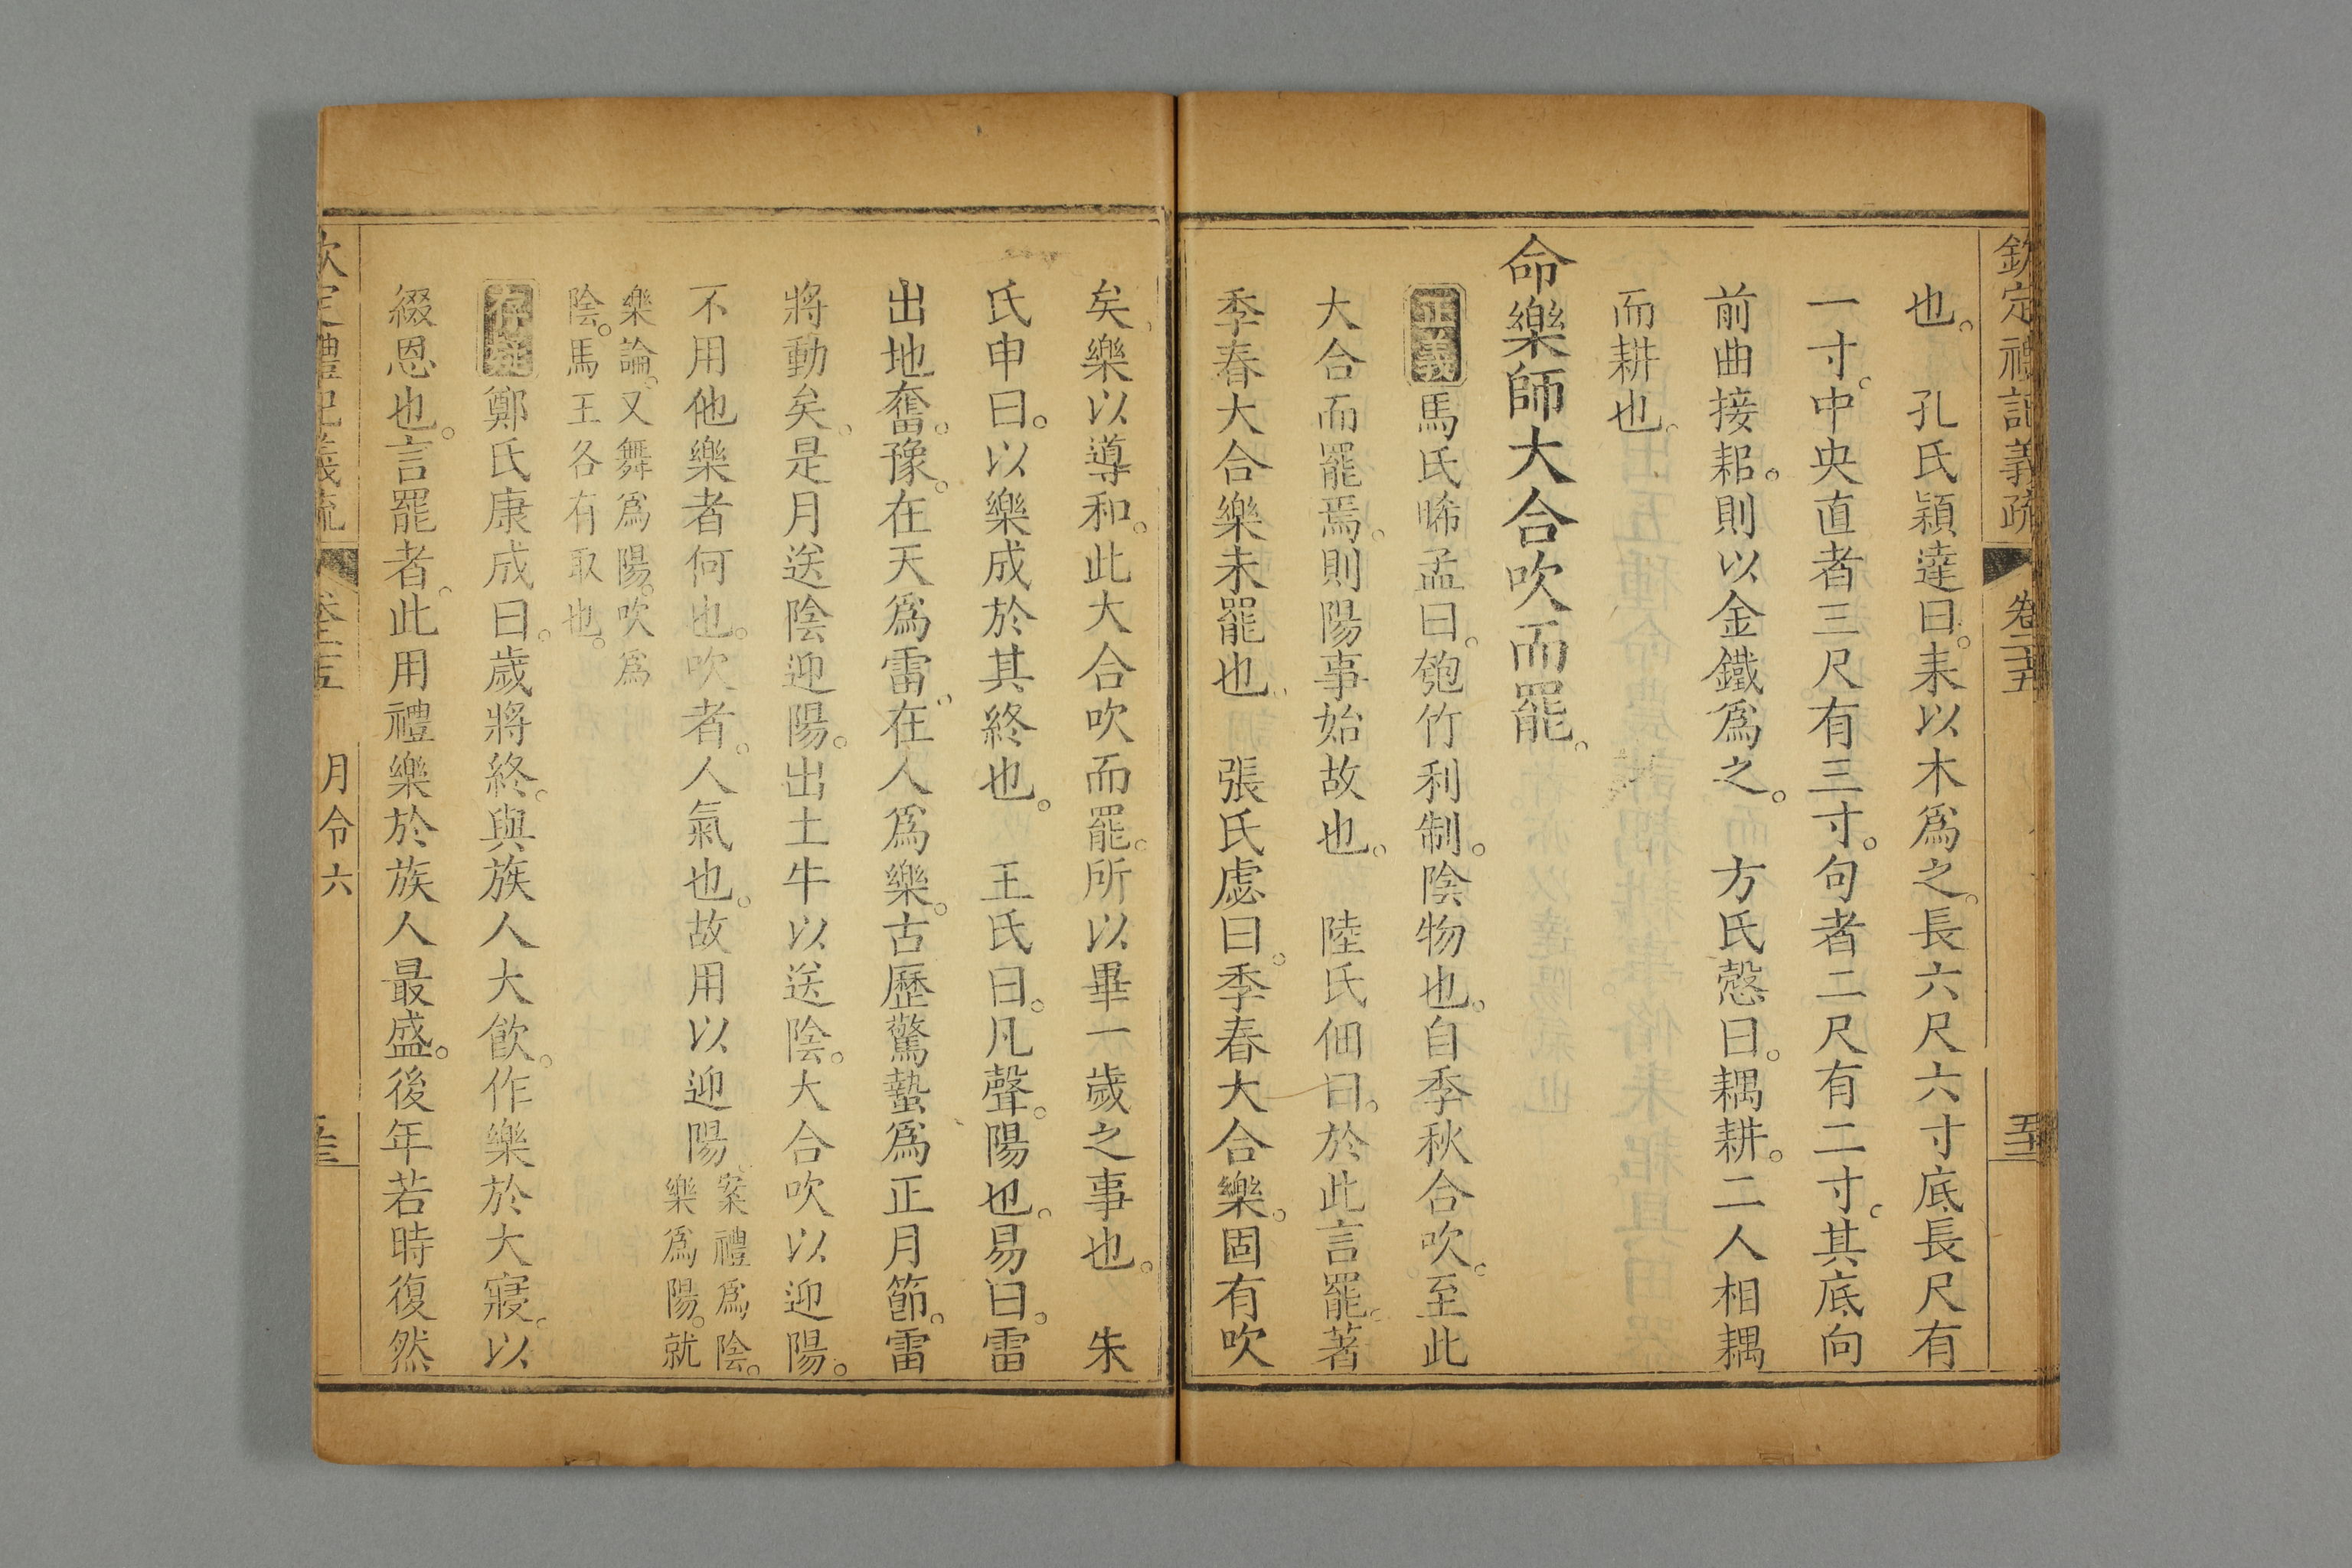 欽定禮記義疏 卷二十五 五十三
也。 孔氏穎達曰。耒以木爲之。長六尺六寸底長尺有
一寸。中央直者三尺有三寸。句者二尺有二寸。其底向
前曲接耜。則以金鐵爲之。 方氏慤曰。耦耕。二人相耦
而耕也。
命樂師大合吹而罷。
正義馬氏晞孟曰。匏竹利制。陰物也。自季秋合吹。至此
大合而罷焉。則陽事始故也。 陸氏佃曰。於此言罷。著
季春大合樂未罷也。 張氏虙曰。季春大合樂。固有吹
矣。樂以導和。此大合吹而罷。所以畢一歲之事也。 朱
氏申曰。以樂成於其終也。 王氏曰。凡聲。陽也。易曰。雷
出地奮。豫。在天爲雷。在人爲樂。古歷驚蟄爲正月節。雷
將動矣。是月送陰迎陽。出土牛以送陰。大合吹以迎陽。
不用他樂者何也。吹者。人氣也。故用以迎陽。案禮爲陰。
樂爲陽。就
樂論。又舞爲陽。吹爲
陰。馬王各有取也。
存疑鄭氏康成曰。歲將終。與族人大飮。作樂於大寢。以
綴恩也。言罷者。此用禮樂於族人最盛。後年若時復然
欽定禮記義疏 卷二十五 月令六 五十三